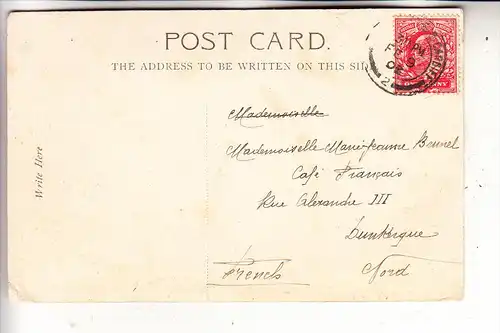 POST CARD.
THE ADDRESS TO BE WRITTEN ON THIS SID
Write Here
Mademoiselle
Mademoiselle Marie-Jeanne Bennel
Café Français
Rue Alexandre III
Dunkerque
French
Nord
PENNY